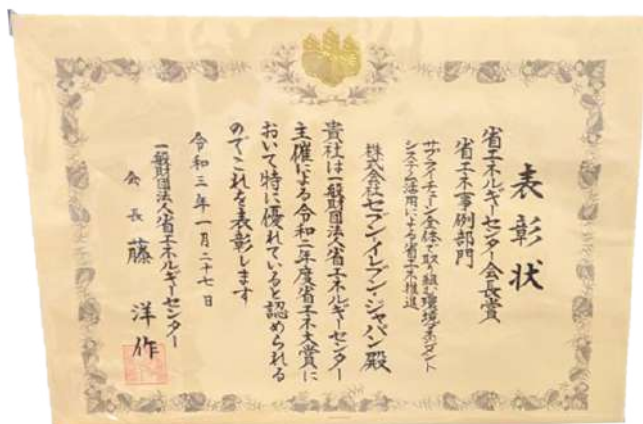 表彰状
省エネルギーセンター会長賞
省エネ事例部門
サプライチェーン全体で取り組む環境マネジメント
システム活用による省エネ推進
株式会社セブン‐イレブン・ジャパン殿
貴社は一般財団法人省エネルギーセンター
主催による令和二年度省エネ大賞に
おいて特に優れていると認められる
のでこれを表彰します
令和三年一月二十七日
一般財団法人省エネルギーセンター
会長 藤洋作